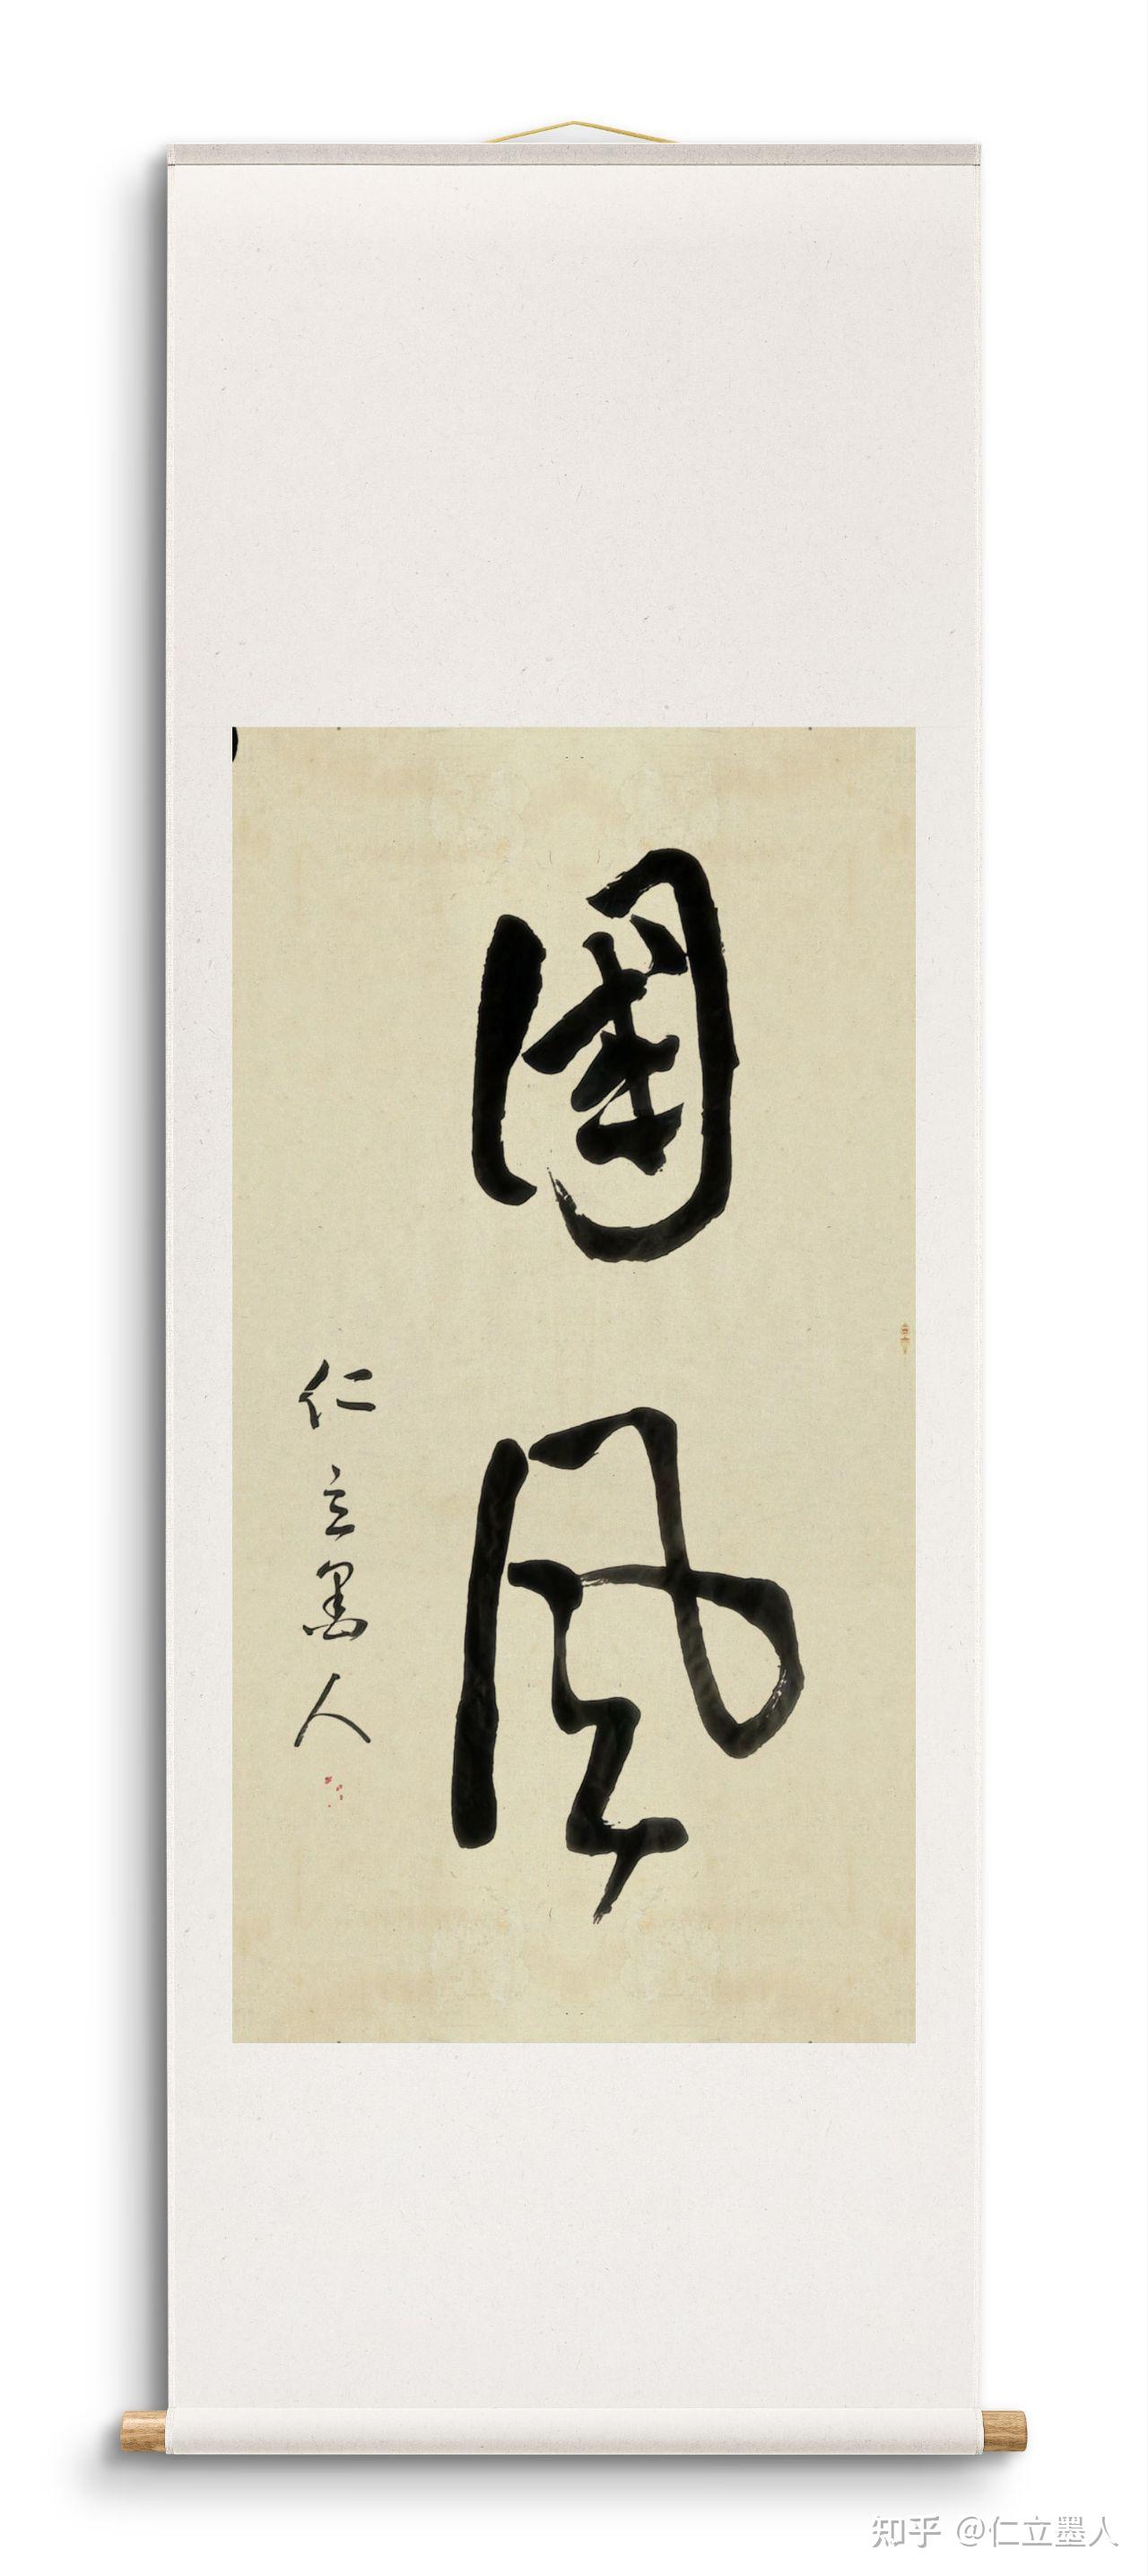 国风
仁立墨人
知乎 @仁立墨人